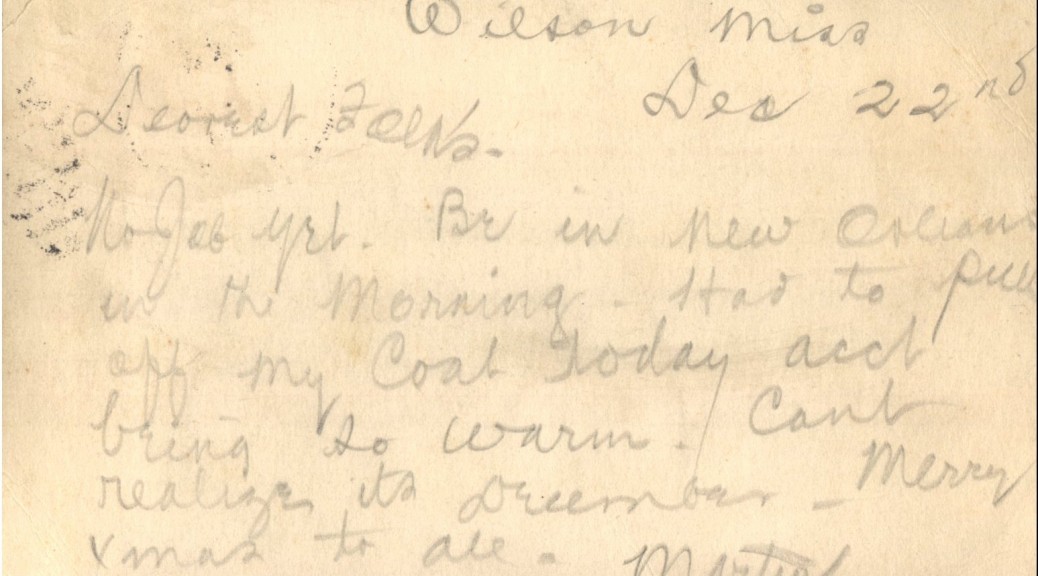 Wilson Miss
Dec 22nd
Dearest Folks.
No Job yet. Be in New Orleans
in the Morning. Had to pull
off my Coat Today acct
being so warm. Cant
realize its December - Merry
xmas to all.